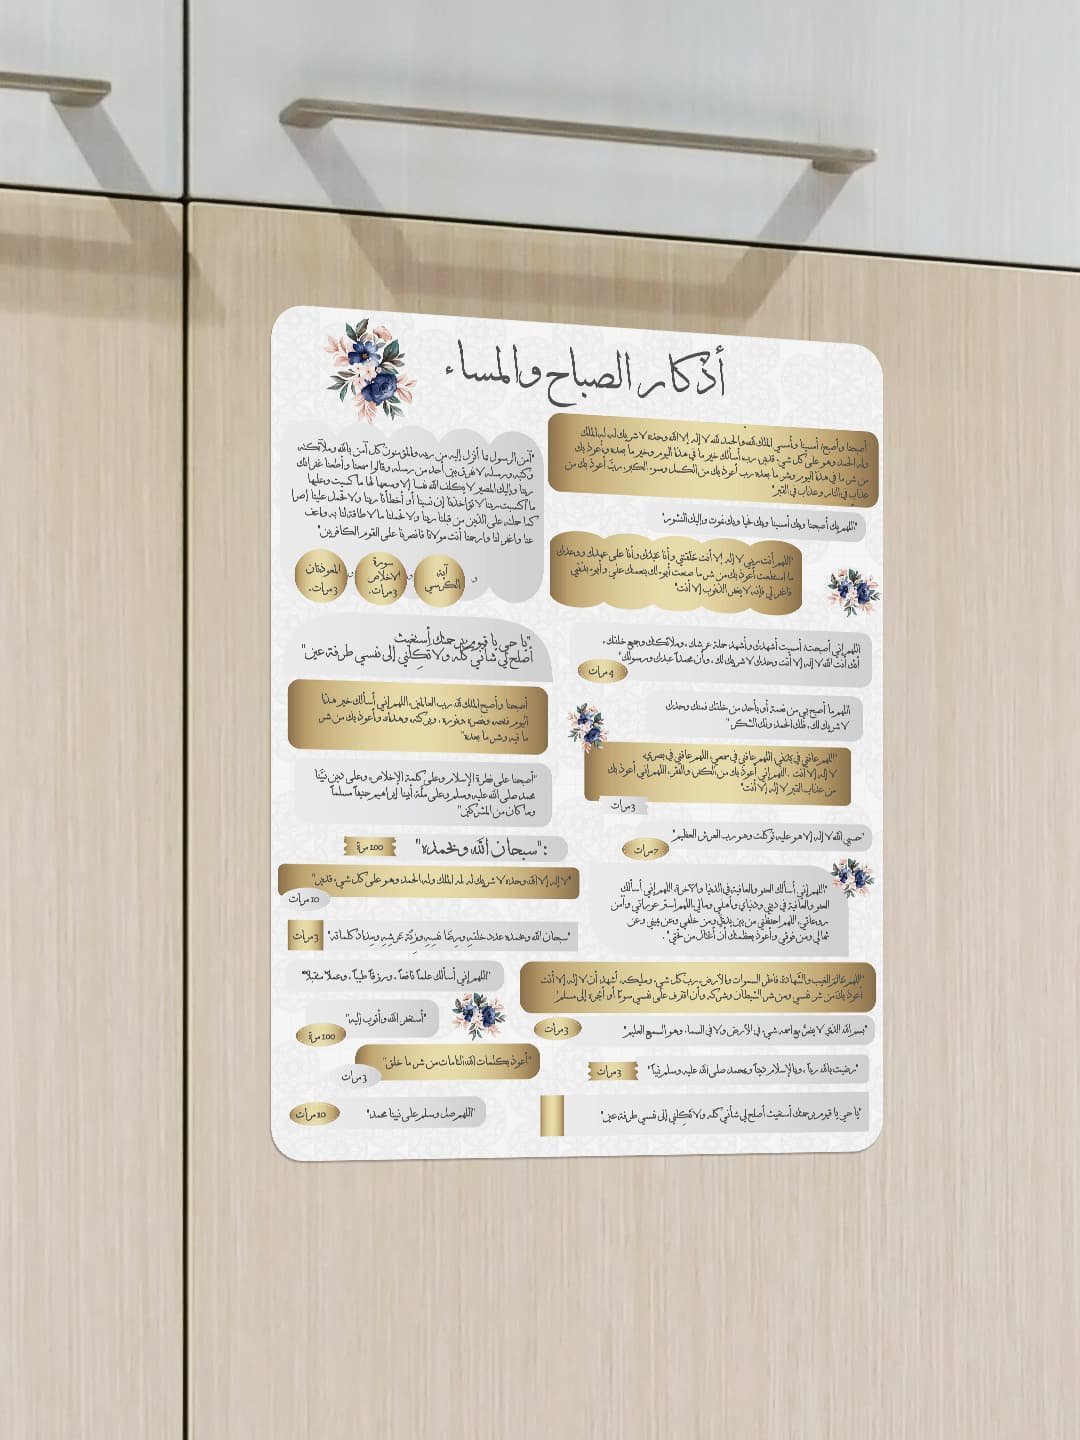 أذكار الصباح والمساء
"أصبحنا وأصبح/ أمسينا وأمسى الملك لله والحمد لله لا إله إلا الله وحده لا شريك له له الملك
وله الحمد وهو على كل شيء قدير، رب أسألك خير ما في هذا اليوم وخير ما بعده وأعوذ بك
من شر ما في هذا اليوم وشر ما بعده رب أعوذ بك من الكسل وسوء الكبر، ربّ أعوذ بك من
عذاب في النار وعذاب في القبر"
"اللهم بك أصبحنا وبك أمسينا وبك نحيا وبك نموت وإليك النشور"
"اللهم أنت ربي لا إله إلا أنت خلقتني وأنا عبدك وأنا على عهدك ووعدك
ما استطعت أعوذ بك من شر ما صنعت أبوء لك بنعمتك علي وأبوء بذنبي
فاغفر لي فإنه لا يغفر الذنوب إلا أنت"
اللهم إني أصبحت/ أمسيت أشهدك وأشهد حملة عرشك، وملائكتك وجميع خلقك،
أنك أنت الله لا إله إلا أنت وحدك لا شريك لك، وأن محمداً عبدك ورسولك"
4 مرات
اللهم ما أصبح بي من نعمة أو بأحد من خلقك فمنك وحدك
لا شريك لك، فلك الحمد ولك الشكر"
"اللهم عافني في بدني، اللهم عافني في سمعي، اللهم عافني في بصري،
لا إله إلا أنت. اللهم إني أعوذ بك من الكفر، والفقر، اللهم إني أعوذ بك
من عذاب القبر لا إله إلا أنت"
3 مرات
"حسبي الله لا إله إلا هو عليه توكلت وهو رب العرش العظيم"
7 مرات
"اللهم إني أسألك العفو والعافية في الدنيا والآخرة، اللهم إني أسألك
العفو والعافية في ديني ودنياي وأهلي ومالي اللهم استر عوراتي وآمن
روعاتي، اللهم احفظني من بين يديّ ومن خلفي وعن يميني وعن
شمالي ومن فوقي وأعوذ بعظمتك أن أغتال من تحتي".
"اللهم عالم الغيب والشهادة، فاطر السموات والأرض، رب كل شيء ومليكه، أشهد أن لا إله إلا أنت
أعوذ بك من شر نفسي ومن شر الشيطان وشركه وأن اقترف على نفسي سوءًا أو أجره إلى مسلم"
"بسم الله الذي لا يضر مع اسمه شيء في الأرض ولا في السماء وهو السميع العليم"
3 مرات
"رضيت بالله رباً، وبالإسلام ديناً وبمحمد صلى الله عليه وسلم نبياً"
3 مرات
"يا حي يا قيوم برحمتك أستغيث أصلح لي شأني كله ولا تكلني إلى نفسي طرفة عين"
"آمن الرسول بما أنزل إليه من ربه والمؤمنون كل آمن بالله وملائكته
وكتبه ورسله لا نفرق بين أحد من رسله وقالوا سمعنا وأطعنا غفرانك
ربنا وإليك المصير لا يكلف الله نفسا إلا وسعها لها ما كسبت وعليها
ما اكتسبت ربنا لا تؤاخذنا إن نسينا أو أخطأنا ربنا ولا تحمل علينا إصرا
كما حملته على الذين من قبلنا ربنا ولا تحملنا ما لا طاقة لنا به واعف
عنا واغفر لنا وارحمنا أنت مولانا فانصرنا على القوم الكافرين"
و
آية
الكرسي
و
سورة
الاخلاص
3 مرات.
و
المعوذتان
3 مرات.
"يا حي يا قيوم برحمتك أستغيث
أصلح لي شأني كله ولا تكلني إلى نفسي طرفة عين"
أصبحنا وأصبح الملك لله رب العالمين، اللهم إني أسألك خير هذا
اليوم فتحه، ونصره، ونوره، وبركته وهداه، وأعوذ بك من شر
ما فيه وشر ما بعده"
"أصبحنا على فطرة الإسلام وعلى كلمة الإخلاص، وعلى دين نبينا
محمد صلى الله عليه وسلم وعلى ملة أبينا إبراهيم حنيفاً مسلماً
وما كان من المشركين"
:"سبحان الله وبحمده"
100 مرة
"لا إله إلا الله وحده لا شريك له له الملك وله الحمد وهو على كل شيء قدير"
10 مرات
"سبحان الله وبحمده عدد خلقه ورضا نفسه وزنة عرشه ومداد كلماته"
3 مرات
"اللهم إني أسألك علماً نافعاً، ورزقاً طيباً، وعملا متقبلا"
"أستغفر الله وأتوب إليه"
100 مرة
"أعوذ بكلمات الله التامات من شر ما خلق"
3 مرات
"اللهم صل وسلم على نبينا محمد"
10 مرات